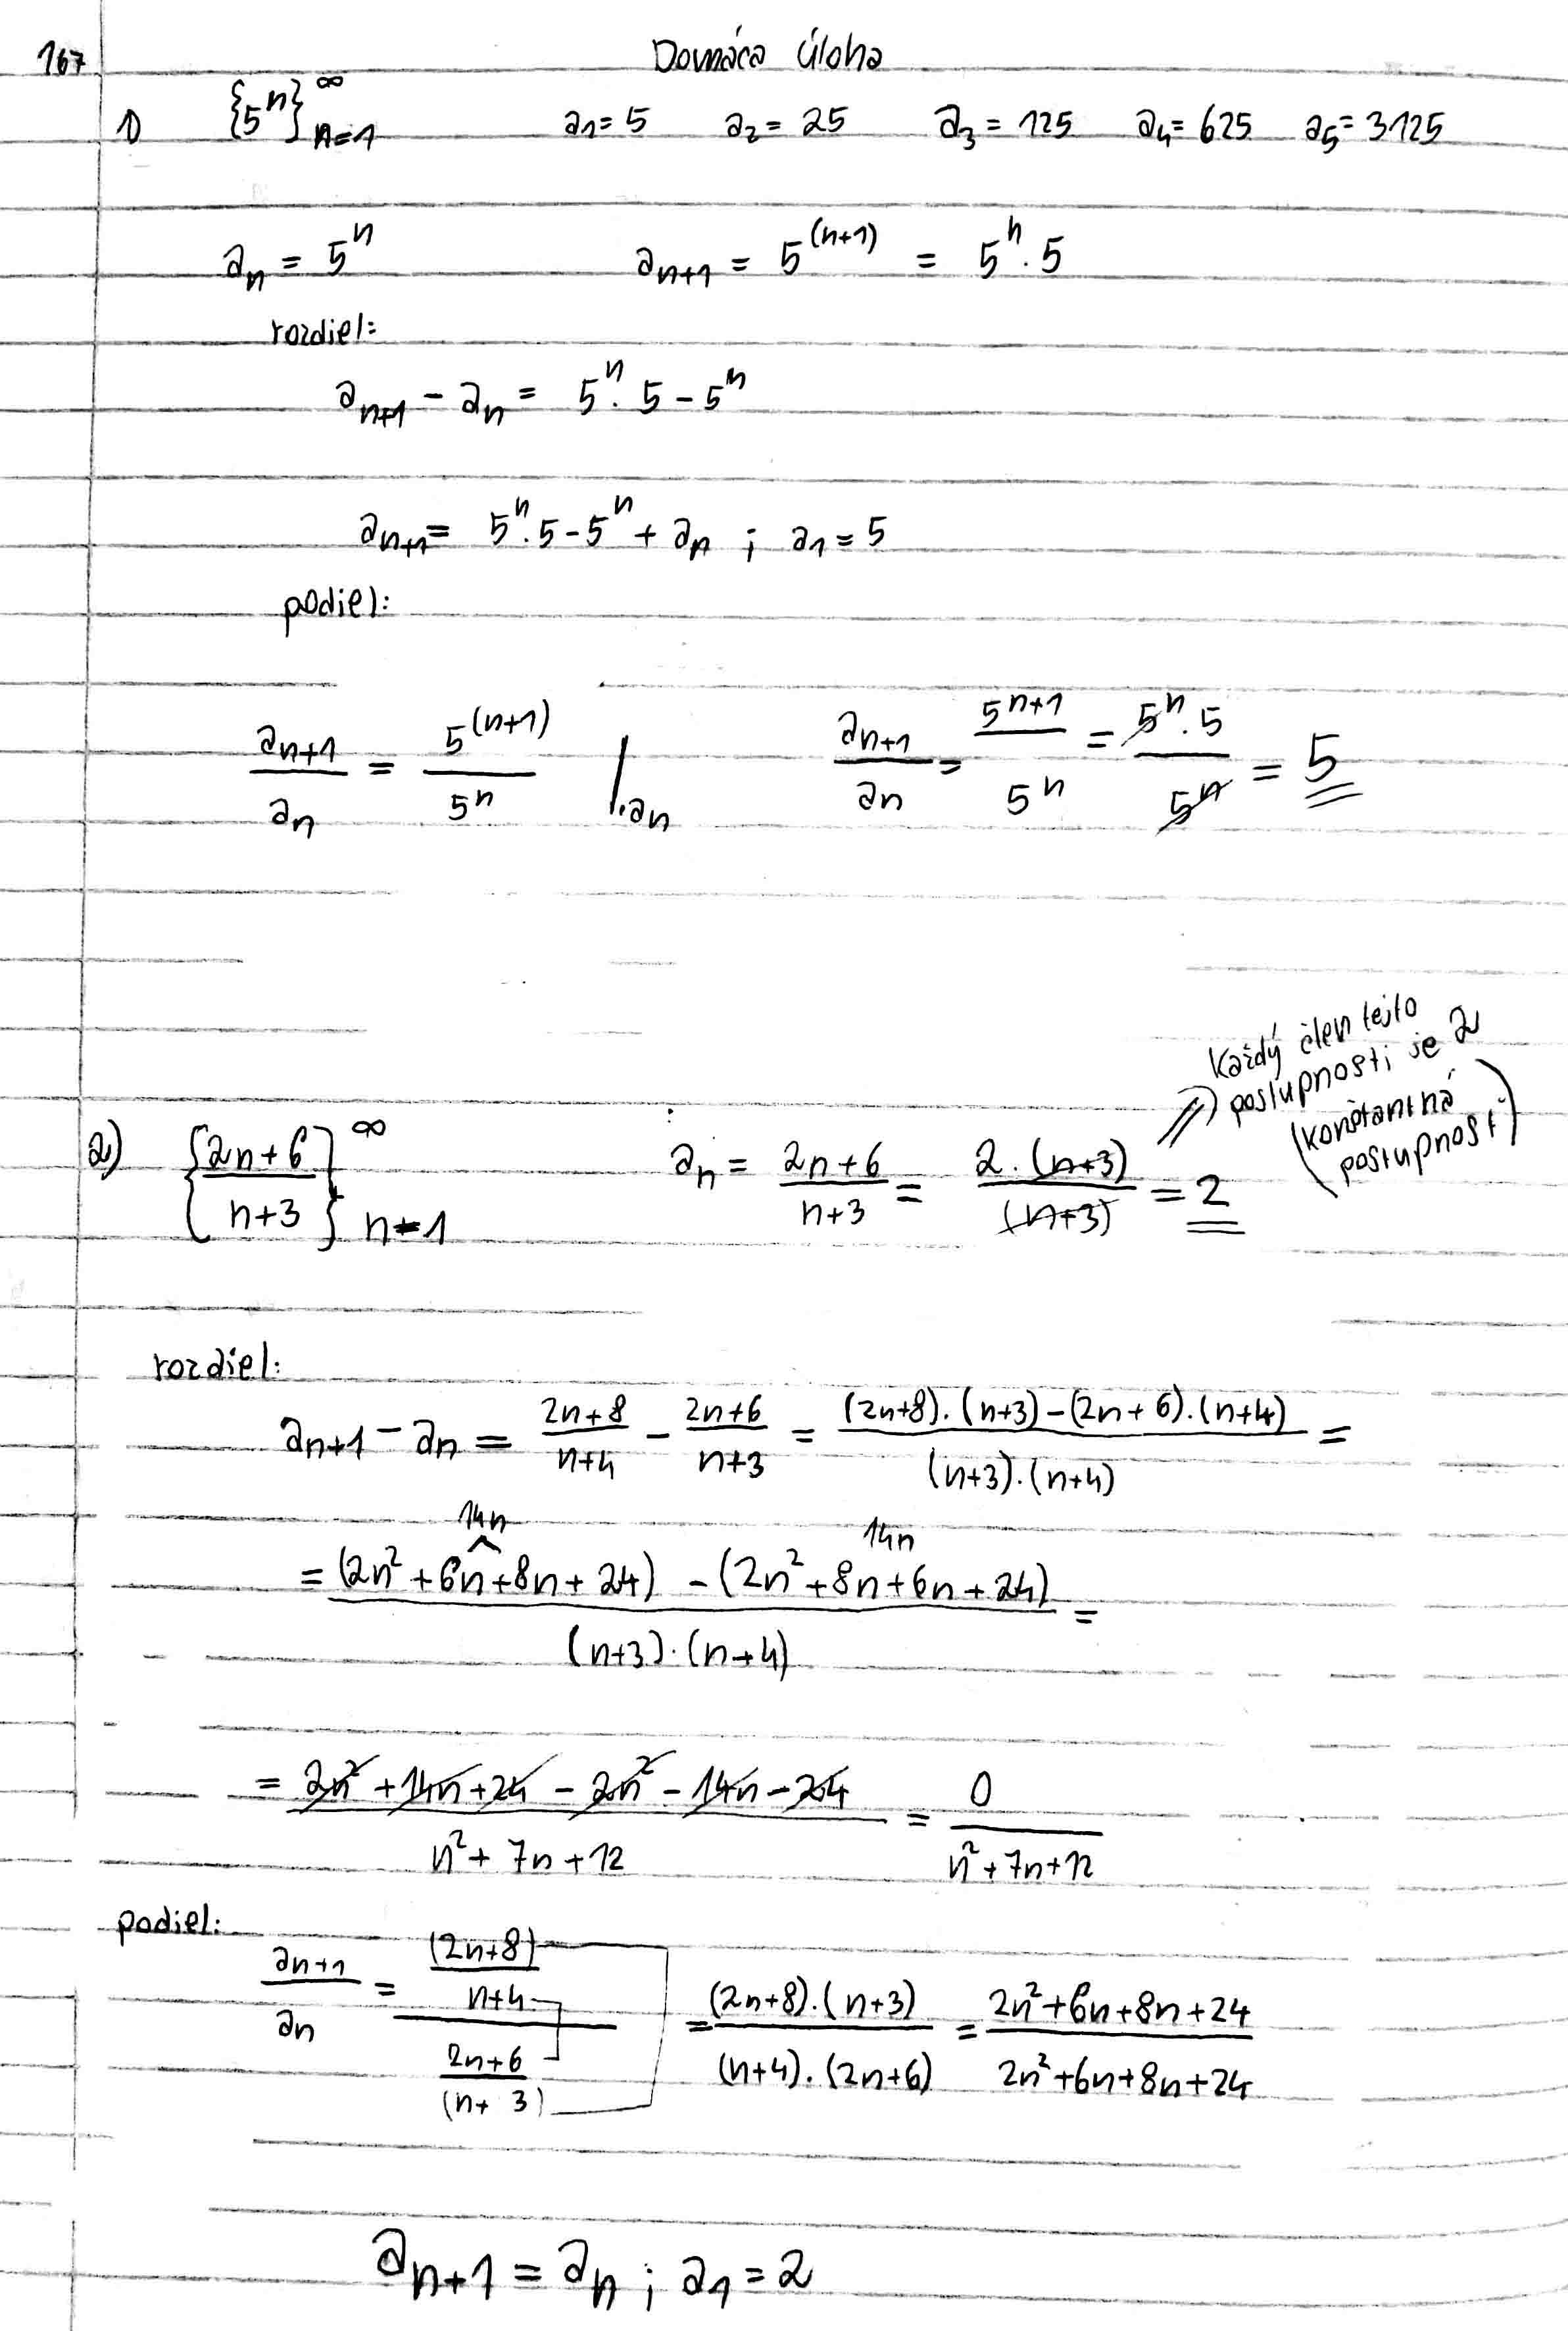 167 Domáca úloha
1) {5^n}_{n=1}^∞ a₁=5 a₂=25 a₃=125 a₄=625 a₅=3125
a_n = 5^n a_{n+1} = 5^{(n+1)} = 5^n . 5
rozdiel:
a_{n+1} - a_n = 5^n . 5 - 5^n
a_{n+1} = 5^n . 5 - 5^n + a_n ; a₁ = 5
podiel:
a_{n+1}/a_n = 5^{(n+1)}/5^n /.a_n a_{n+1}/a_n = 5^{n+1}/5^n = 5^n . 5/5^n = 5
Každý člen tejto
postupnosti je 2
(konštantná
postupnosť)
2) {(2n+6)/(n+3)}_{n=1}^∞ a_n = (2n+6)/(n+3) = 2.(n+3)/(n+3) = 2 ⇒
rozdiel:
a_{n+1} - a_n = (2n+8)/(n+4) - (2n+6)/(n+3) = ((2n+8).(n+3)-(2n+6).(n+4))/((n+3).(n+4)) =
14n 14n
= ((2n²+6n+8n+24) - (2n²+8n+6n+24))/((n+3).(n+4)) =
= (2n²+14n+24-2n²-14n-24)/(n²+7n+12) = 0/(n²+7n+12)
podiel:
a_{n+1}/a_n = ((2n+8)/(n+4))/((2n+6)/(n+3)) = ((2n+8).(n+3))/((n+4).(2n+6)) = (2n²+6n+8n+24)/(2n²+6n+8n+24)
a_{n+1} = a_n ; a₁ = 2